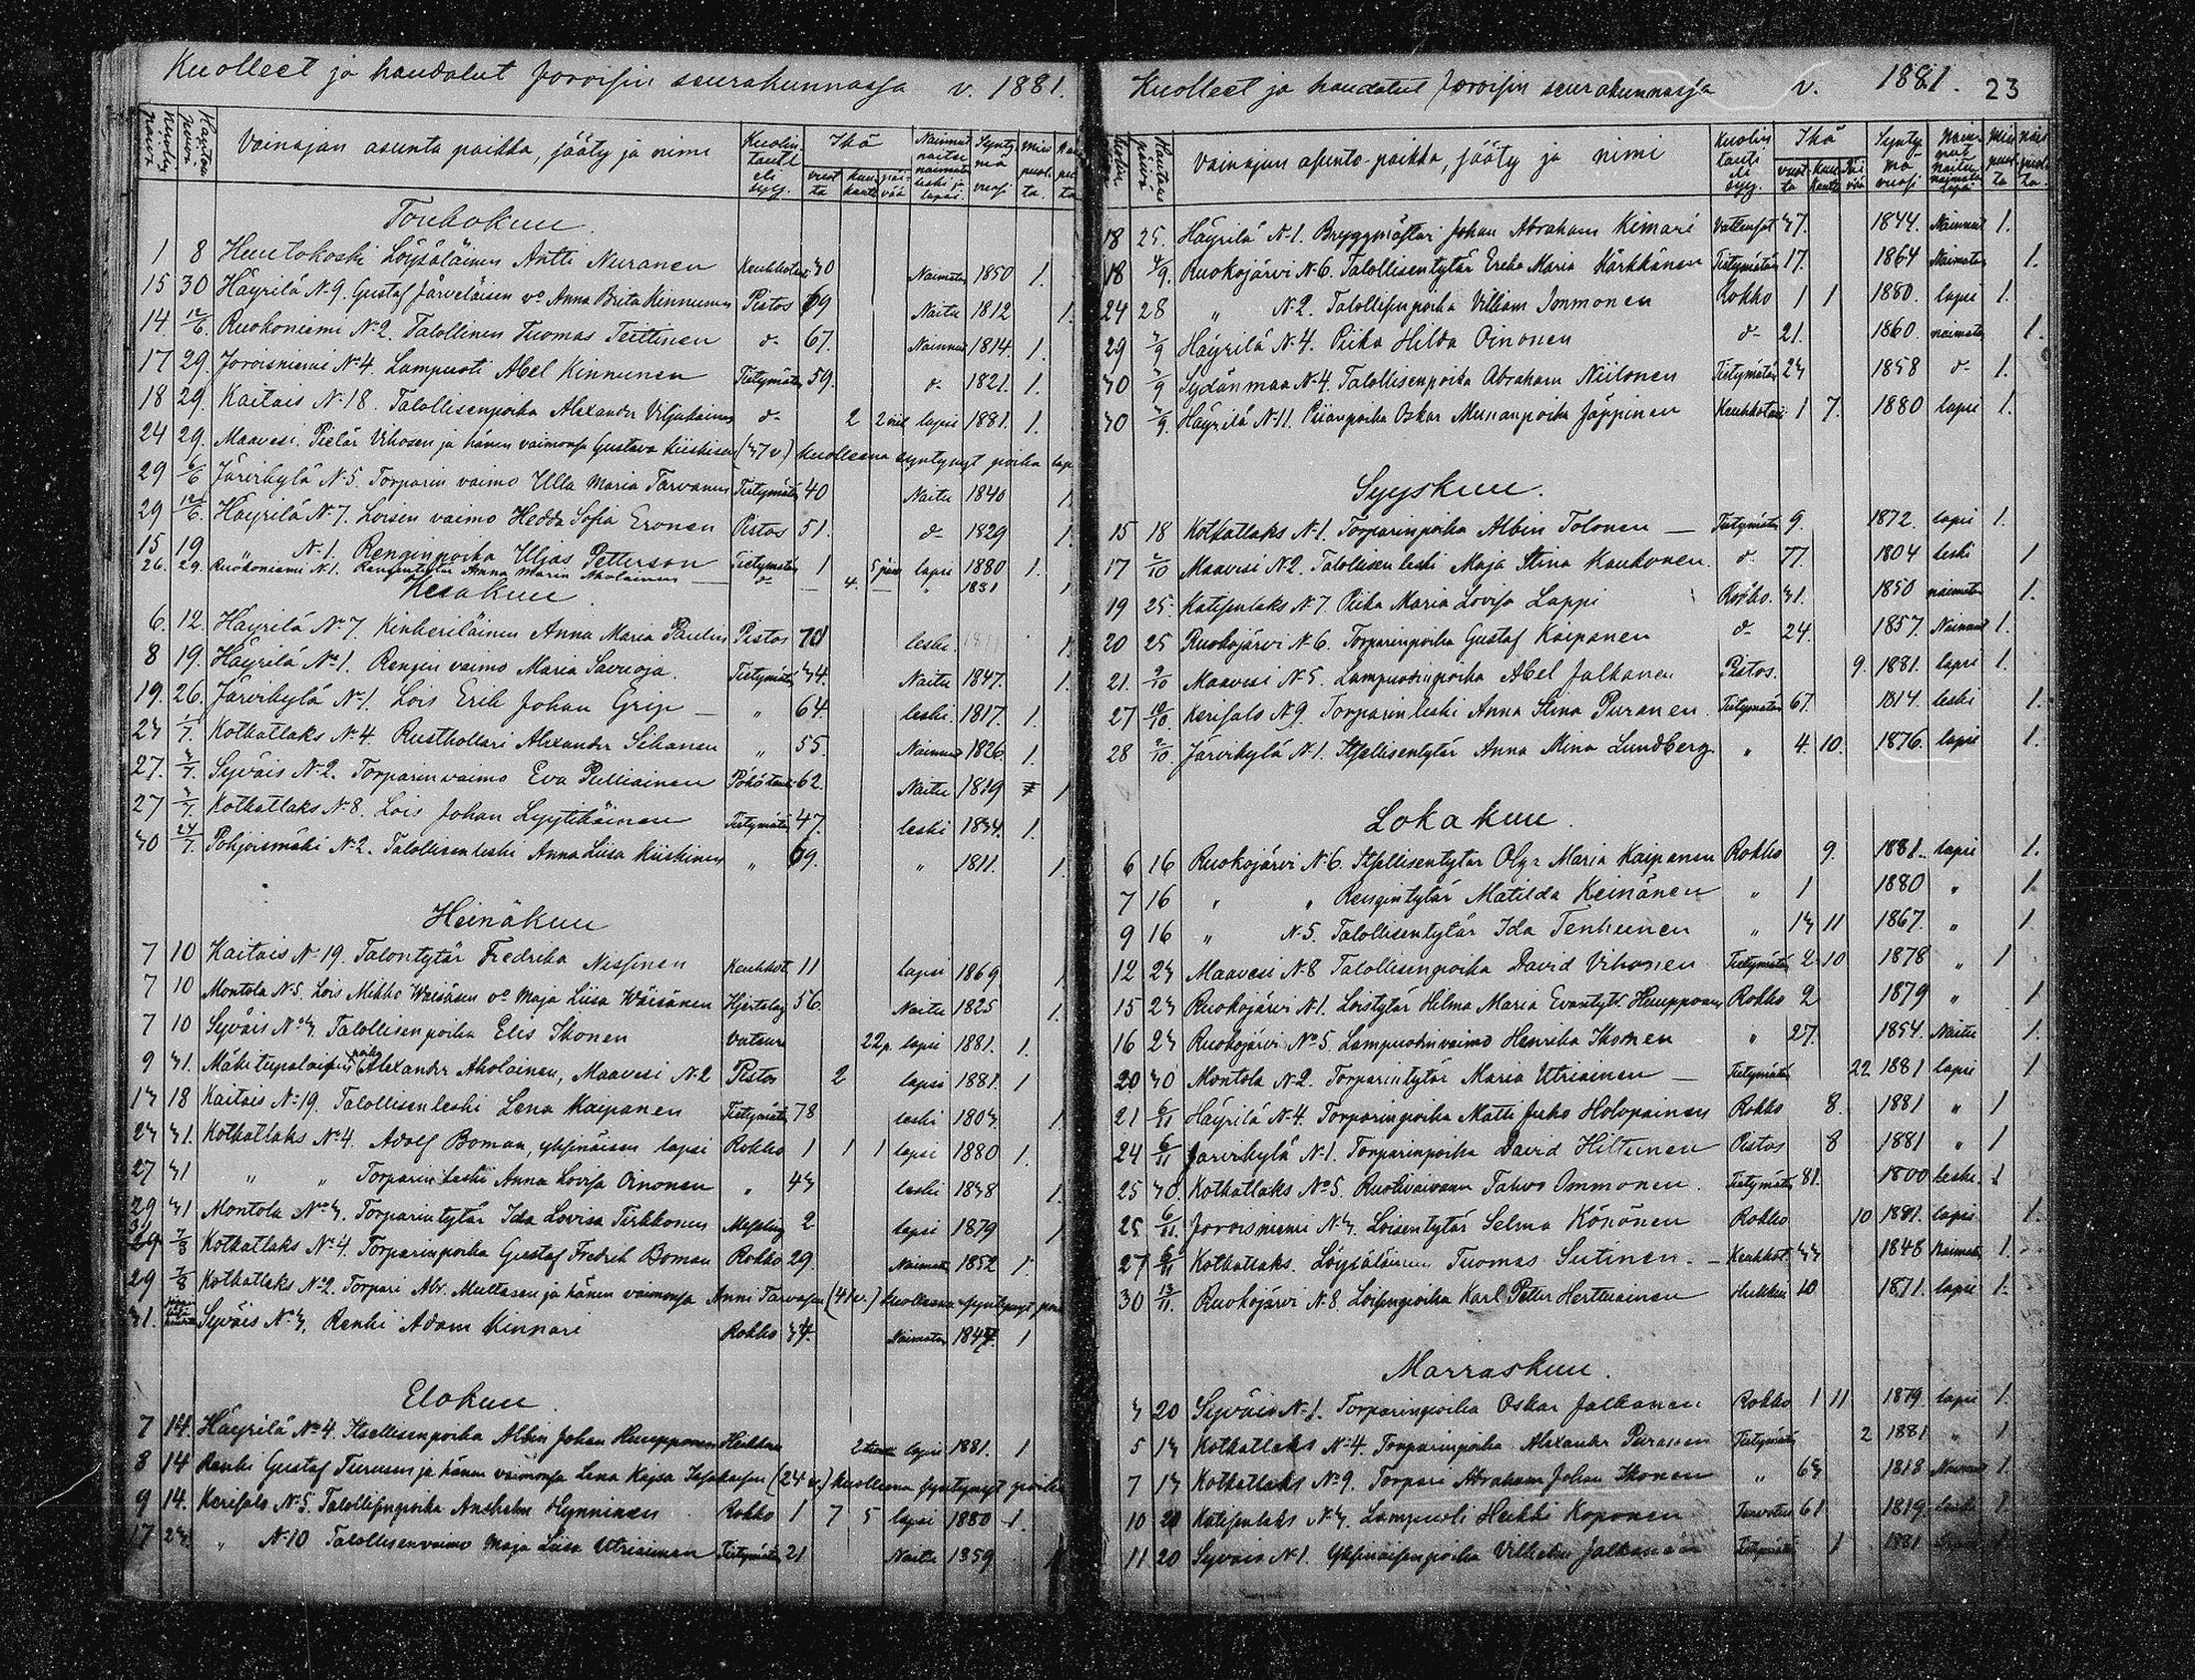 Kuolleet ja haudatut Joroisin seurakunnassa v. 1881.
Vainajan asunta paikka, sääty ja nimi Kuolin tauti eli syy. Ikä
Toukokuu.
1 8 Huutokoski Löysäläinen Antti Nuranen Keuhkotauti 30 Naimaton 1850 1.
15 30 Häyrilä No 9. Gustaf Järveläisen vo Anna Brita Kinnunen Pistos 69 Naitu 1812 1.
14 12/6. Ruokoniemi No 2. Talollinen Tuomas Teittinen d- 67. Nainnut 1814. 1.
17 29. Joroisniemi No 4. Lampuoti Abel Kinnunen Tietymätön 59. d- 1821. 1.
18 29. Kaitais No 18. Talollisenpoika Alexander Viljakainen d- 2 2 lapsi 1881. 1.
24 29. Maavesi. Pietär Vihosen ja hänen vaimonsa Gustava Kiiskisen (37 v.) kuolleena syntynyt poika
29 6/6 Järvikylä No 5. Torparin vaimo Ulla Maria Tarvanen Tietymätön 40 Naitu 1840 1
29 12/6. Häyrilä No 7. Loisen vaimo Hedda Sofia Eronen Pistos 51. d- 1829 1.
15 19 No 1. Renginpoika Uljas Petterson Tietymätön 1 5 päiv lapsi 1880 1.
26. 29. Ruokoniemi No 1. Rengintytär Anna Maria Aholainen d- 4. " 1881 1
Kesäkuu.
6. 12. Häyrilä No 7. Kinkeriläinen Anna Maria Paulin Pistos 70 leski. 1.
8 19. Häyrilä No 1. Rengin vaimo Maria Savuoja. Tietymätön 34. Naitu 1847. 1.
19. 26. Järvikylä No 1. Lois Erik Johan Grip " 64. leski. 1817. 1.
23 1/7. Kotkatlaks No 4. Rusthollari Alexander Sihanen " 55. Nainnut 1826. 1.
27. 3/7. Syväis No 2. Torparinvaimo Eva Pulliainen 62. Naitu 1819 1.
27 3/7. Kotkatlaks No 8. Lois Johan Lyytikäinen Tietymätön 47. leski 1834. 1.
30 24/7. Pohjoismäki No 2. Talollisenleski Anna Liisa Kiiskinen " 69. " 1811. 1.
Heinäkuu
7 10 Kaitais No 19. Talontytär Fredrika Nissinen Keuhkot 11 lapsi 1869 1
7 10 Montola No 5. Lois Mikko Wäisäsen vo Maja Liisa Wäisänen 56. Naitu 1825 1.
7 10 Syväis No 3. Talollisenpoika Elis Ikonen 22 p. lapsi 1881. 1.
9 31. Mäkitupalaisen poika Alexander Aholainen, Maavesi No 2 Pistos 2 lapsi 1881. 1
13 18 Kaitais No 19. Talollisenleski Lena Kaipanen Tietymätön 78 leski 1803. 1.
23 31. Kotkatlaks No 4. Adolf Boman, yksinäisen lapsi Rokko 1 1 1 lapsi 1880 1.
27 31 " " Torparin leski Anna Lovisa Oinonen " 43 leski 1838 1.
29 31 Montola No 3. Torparintytär Ida Lovisa Tirkkonen 2 lapsi 1879 1
31 7/8 Kotkatlaks No 4. Torparinpoika Gustaf Fredrik Boman Rokko 29. Naimaton 1852 1.
29 7/8 Kotkatlaks No 2. Torpari Abr. Multasen ja hänen vaimonsa Anni Tarvasen (41 v.) kuolleena syntynyt
31. Syväis No 3. Renki Adam Kinnari Rokko 34. Naimaton 1847. 1
Elokuu.
7 14. Häyrilä No 4. Itsellisenpoika Albin Johan Huupponen Heikkous 2 lapsi 1881. 1
8 14 Renki Gustaf Turunen ja hänen vaimonsa Lena Kajsa (24 v.) kuolleena syntynyt poika
9 14. Kerisalo No 5. Talollisenpoika Anshelm Hynninen Rokko 1 7 5 lapsi 1880 1.
17 23. " No 10 Talollisenvaimo Maja Liisa Utriainen Tietymätön 21 Naitu 1859 1
Kuolleet ja haudatut Joroisin seurakunnassa v. 1881. 23
Vainajan asunto-paikka, sääty ja nimi Kuolin tauti eli syy. Ikä
18 25. Häyrilä No 1. Bryggmästari Johan Abraham Kimari 37. 1844. Nainnut 1.
18 4/9. Ruokojärvi No 6. Talollisentytär Erika Maria Kärkkänen Tietymätön 17. 1864 Naimaton 1.
24 28 " No 2. Talollisenpoika Villiam Immonen Rokko 1 1 1880. lapsi 1.
29 4/9 Häyrilä No 4. Piika Hilda Oinonen d- 21. 1860. naimaton 1.
30 4/9 Sydänmaa No 4. Talollisenpoika Abraham Niilonen Tietymätön 23 1858 d- 1.
30 4/9. Häyrilä No 11. Piianpoika Oskar Munanpoika Jäppinen Keuhkotauti 1 7. 1880 lapsi 1.
Syyskuu.
15 18 Kotkatlaks No 1. Torparinpoika Albin Tolonen Tietymätön 9. 1872. lapsi 1.
17 2/10 Maavesi No 2. Talollisen leski Maja Stina Kaukonen. d- 77. 1804 leski 1
19 25. Katisenlaks No 7. Piika Maria Lovisa Lappi Rokko. 31. 1850 naimaton 1.
20 25 Ruokojärvi No 6. Torparinpoika Gustaf Kaipanen d- 24. 1857. Nainnut 1.
21. 9/10 Maavesi No 5. Lampuodinpoika Abel Jalkanen Pistos. 9. 1881. lapsi 1.
27 10/10. Kerisalo No 9. Torparinleski Anna Stina Puranen. Tietymätön 67. 1814. leski 1.
28 2/10. Järvikylä No 1. Itsellisentytär Anna Mina Lundberg " 4. 10. 1876. lapsi 1.
Lokakuu.
6 16 Ruokojärvi No 6. Itsellisentytär Olga Maria Kaipanen Rokko 9. 1881. lapsi 1.
7 16 " " Rengintytär Matilda Keinänen " 1 1880 " 1
9 16 " No 5. Talollisentytär Ida Tenhunen " 13 11 1867. " 1
12 23 Maavesi No 8 Talollisenpoika David Vihonen Tietymätön 2 10 1878 " 1
15 23 Ruokojärvi No 1. Loistytär Hilma Maria Evantyt. Huupponen Rokko 2 1879 " 1
16 23 Ruokojärvi No 5. Lampuodinvaimo Henrika Ikonen " 27. 1854. Naitu 1.
20 30 Montola No 2. Torparintytär Maria Utriainen Tietymätön 22 1881 lapsi 1
21 6/11 Häyrilä No 4. Torparinpoika Matti Juho Holopainen Rokko 8. 1881 " 1
24 6/11 Järvikylä No 1. Torparinpoika David Hiltunen Pistos 8 1881 " 1
25 30. Kotkatlaks No 5. Ruotivaivaan Tahvo Ommonen. Tietymätön 81. 1800 leski. 1
25 6/11. Joroisniemi No 3. Loisentytär Selma Könönen Rokko 10 1881. lapsi 1.
27 6/11 Kotkatlaks. Löysäläinen Tuomas Sutinen. Keuhkot. 33 1848 Naimaton 1.
30 13/11. Ruokojärvi No 8. Loisenpoika Karl Peter Herttuainen Hukkui 10 1871. lapsi 1.
Marraskuu.
3 20 Syväis No 1. Torparinpoika Oskar Jalkanen Rokko 1 11 1879. lapsi 1.
5 13 Kotkatlaks No 4. Torparinpoika Alexander Puranen Tietymätön 2 1881 " 1
7 13 Kotkatlaks No 9. Torpari Abraham Johan Ikonen " 63 1818 Nainnut 1.
10 20 Katisenlaks No 3. Lampuoti Heikki Koponen 61. 1819. leski 1.
11 20 Syväis No 1. Yksinäisenpoika Vilhelm Jalkanen Tietymätön 1 1881